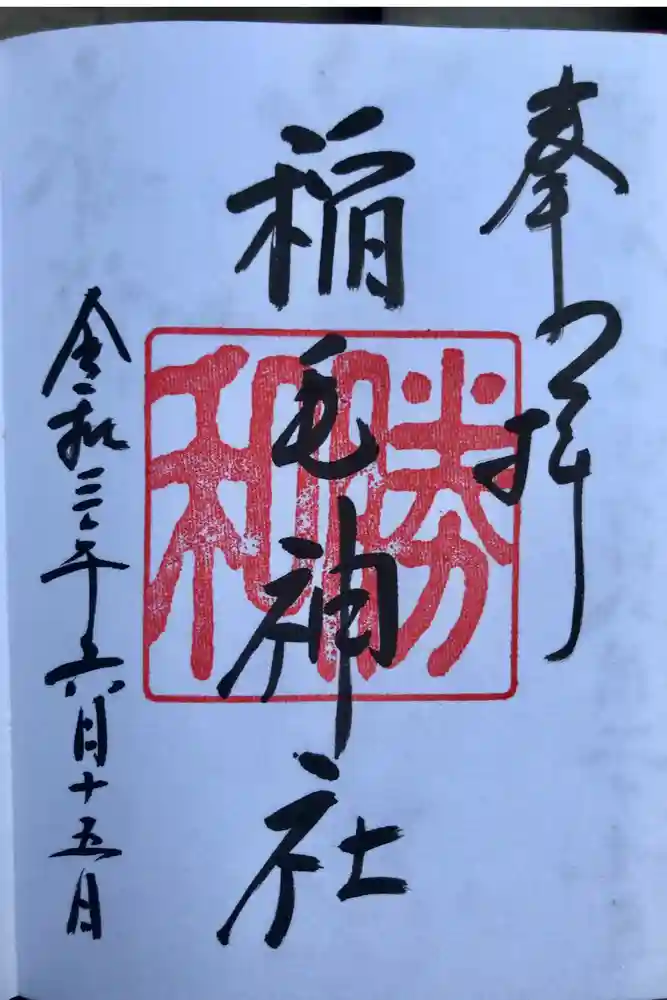 奉拝
稲毛神社
勝和
令和三年六月十五日